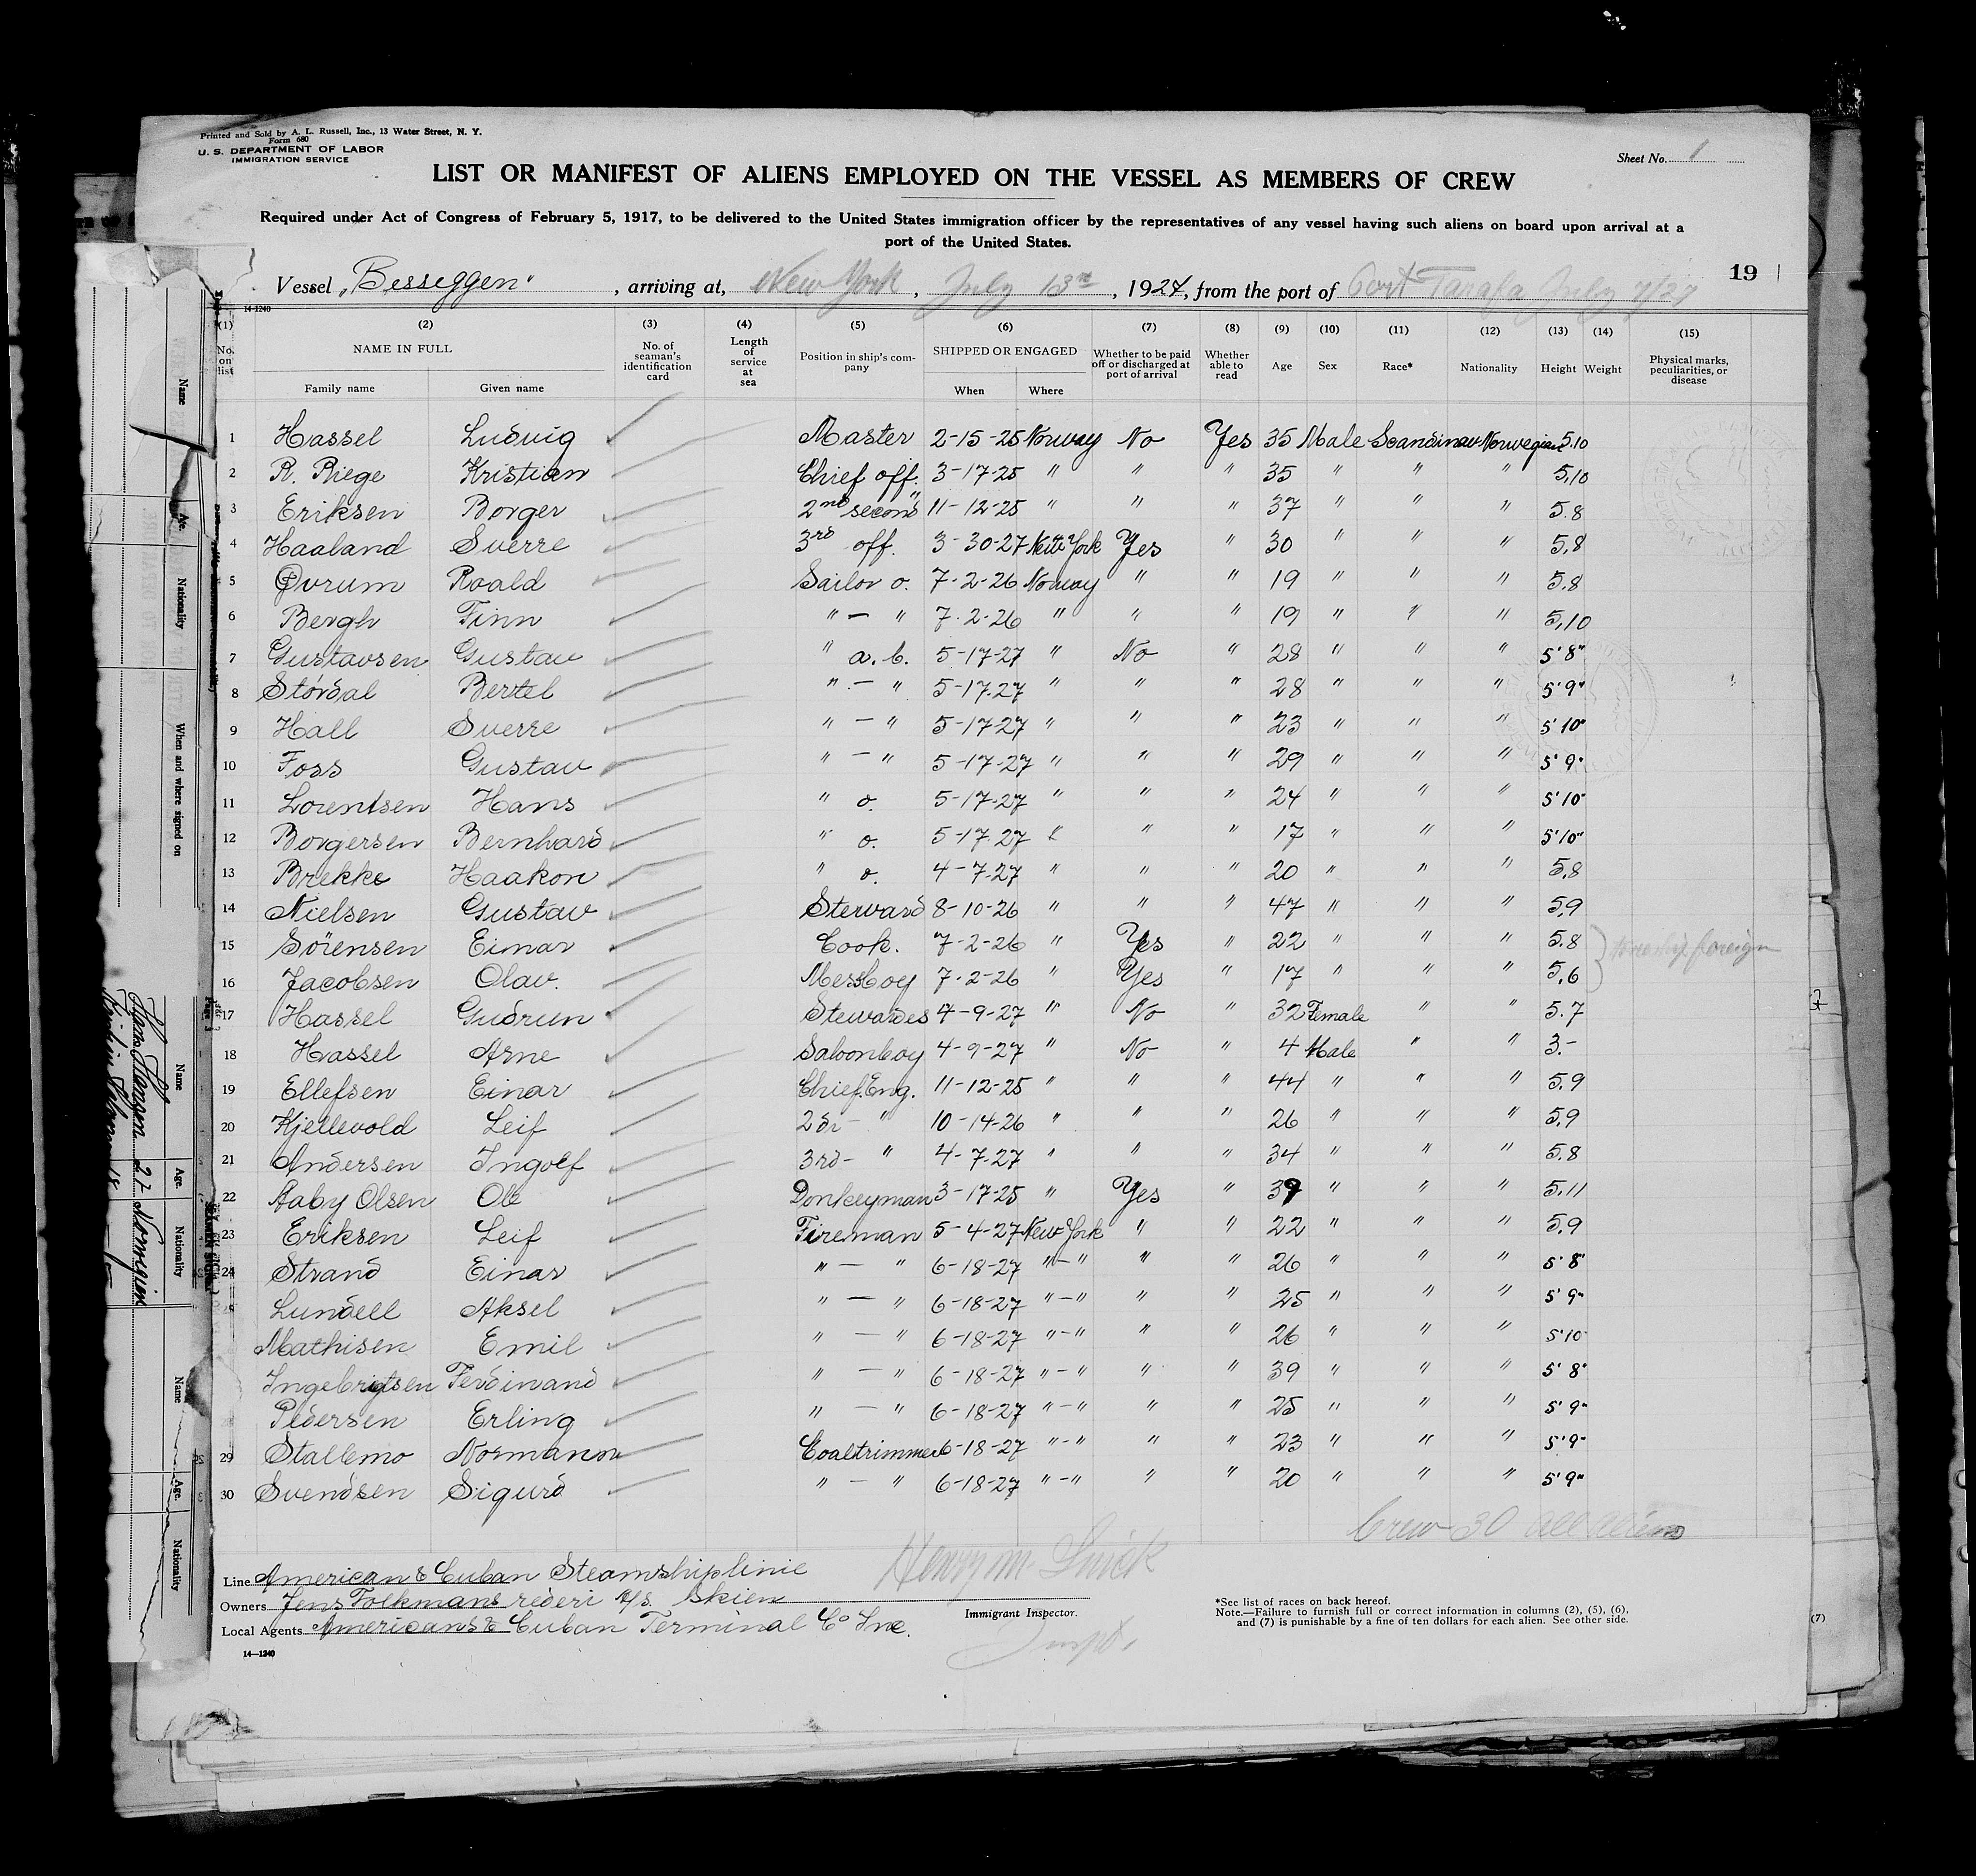 Printed and Sold by A. L. Russell, Inc., 13 Water Street, N. Y.
Form 680
U. S. DEPARTMENT OF LABOR
IMMIGRATION SERVICE
Sheet No. 1
LIST OR MANIFEST OF ALIENS EMPLOYED ON THE VESSEL AS MEMBERS OF CREW
Required under Act of Congress of February 5, 1917, to be delivered to the United States immigration officer by the representatives of any vessel having such aliens on board upon arrival at a
port of the United States.
19
Vessel „Besseggen", arriving at, New York, July 13th, 1927, from the port of Port Tarafa July 7/27
14-1240
(1) (2) (3) (4) (5) (6) (7) (8) (9) (10) (11) (12) (13) (14) (15)
No. on list NAME IN FULL Family name Given name No. of seaman's identification card Length of service at sea Position in ship's company SHIPPED OR ENGAGED When Where Whether to be paid off or discharged at port of arrival Whether able to read Age Sex Race* Nationality Height Weight Physical marks, peculiarities, or disease
1 Hassel Ludvig Master 2-15-25 Norway No Yes 35 Male Scandinav Norwegian 5.10
2 R. Riege Kristian Chief off. 3-17-25 " " " 35 " " " 5,10
3 Eriksen Borger 2nd second " 11-12-25 " " " 37 " " " 5.8
4 Haaland Sverre 3rd off. 3-30-27 New York Yes " 30 " " " 5,8
5 Øvrum Roald Sailor o. 7-2-26 Norway " " 19 " " " 5.8
6 Bergh Finn " — " 7-2-26 " " " 19 " " " 5,10
7 Gustavsen Gustav " a. b. 5-17-27 " No " 28 " " " 5'8"
8 Stórdal Bertel " — " 5-17-27 " " " 28 " " " 5'9"
9 Hall Sverre " — " 5-17-27 " " " 23 " " " 5'10"
10 Foss Gustav " — " 5-17-27 " " " 29 " " " 5'9"
11 Lorentsen Hans " o. 5-17-27 " " " 24 " " " 5'10"
12 Borgersen Bernhard " o. 5-17-27 " " " 17 " " " 5'10"
13 Brekke Haakon " o. 4-7-27 " " " 20 " " " 5,8
14 Nielsen Gustav Steward 8-10-26 " " " 47 " " " 5,9
15 Sörensen Einar Cook. 7-2-26 " Yes " 22 " " " 5.8 foreign
16 Jacobsen Olav. Messboy 7-2-26 " Yes " 17 " " " 5,6
17 Hassel Gudrun Stewardes 4-9-27 " No " 32 Female " " 5.7
18 Hassel Arne Saloonboy 4-9-27 " No " 4 Male " " 3.-
19 Ellefsen Einar Chief.Eng. 11-12-25 " " " 44 " " " 5.9
20 Kjellevold Leif 2dr - " 10-14-26 " " " 26 " " " 5,9
21 Andersen Ingolf 3rd- " 4-7-27 " " " 34 " " " 5.8
22 Aaby Olsen Ole Donkeyman 3-17-25 " Yes " 39 " " " 5,11
23 Eriksen Leif Fireman 5-4-27 New York " " 22 " " " 5.9
24 Strand Einar " — " 6-18-27 "-" " " 26 " " " 5'8"
Lundell Aksel " — " 6-18-27 "-" " " 25 " " " 5'9"
Mathisen Emil " — " 6-18-27 "-" " " 26 " " " 5'10"
Ingebrigtsen Ferdinand " — " 6-18-27 "-" " " 39 " " " 5'8"
Pedersen Erling " — " 6-18-27 "-" " " 25 " " " 5'9"
29 Stallemo Normann Coaltrimmer 6-18-27 "-" " " 23 " " " 5'9"
30 Svendsen Sigurd " — " 6-18-27 "-" " " 20 " " " 5'9"
Crew 30 all aliens
Line American & Cuban Steamshiplinie
Owners Jens Folkmans rederi A/S. Skien
Local Agents American & Cuban Terminal Co Inc.
Henry M
Immigrant Inspector.
Insptr.
*See list of races on back hereof.
Note.—Failure to furnish full or correct information in columns (2), (5), (6),
and (7) is punishable by a fine of ten dollars for each alien. See other side.
14—1240
(7)
Name
Age.
Nationality
When and where signed on
Name
Age.
Nationality
Name
Age.
Nationality
Page 3
27 Norwegian
18